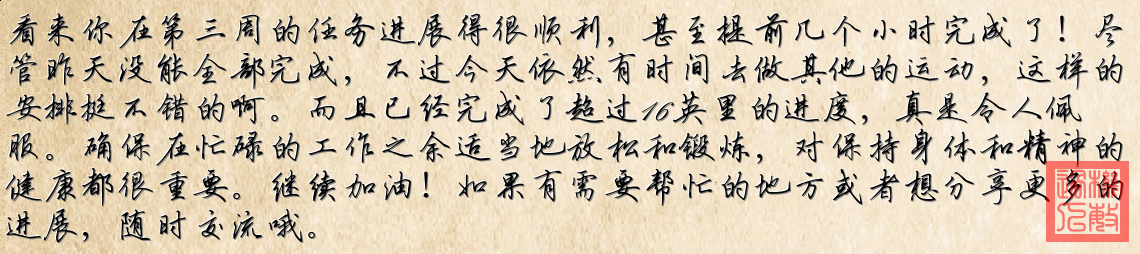 看来你在第三周的任务进展得很顺利，甚至提前几个小时完成了！尽
管昨天没能全部完成，不过今天依然有时间去做其他的运动，这样的
安排挺不错的啊。而且已经完成了超过16英里的进度，真是令人佩
服。确保在忙碌的工作之余适当地放松和锻炼，对保持身体和精神的
健康都很重要。继续加油！如果有需要帮忙的地方或者想分享更多的
进展，随时交流哦。